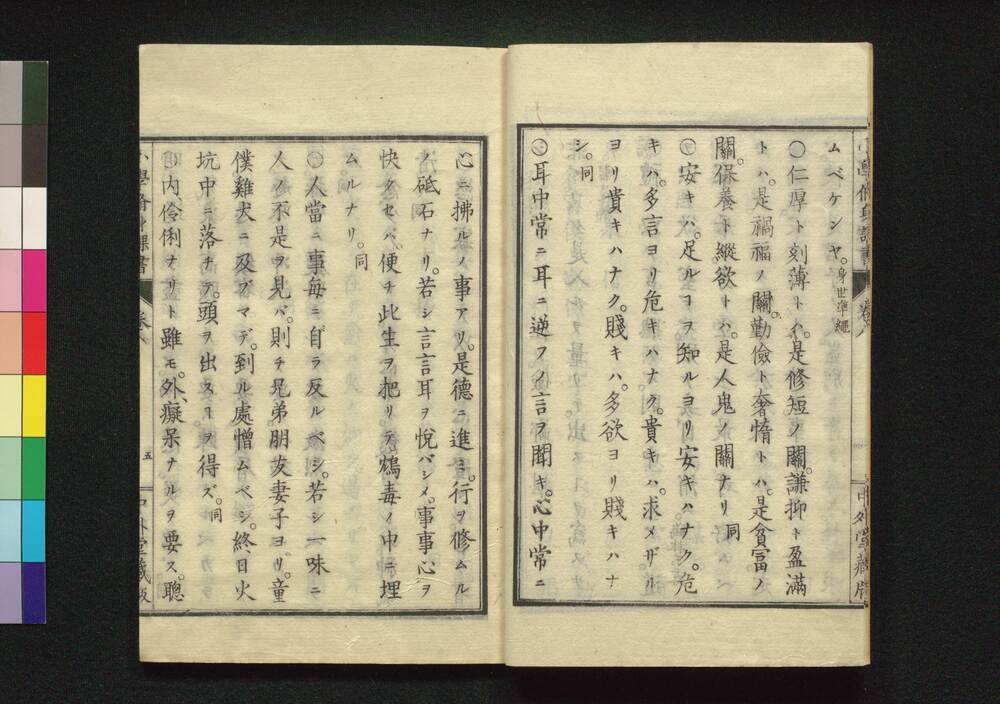 ムベケンヤ。身世準繩
〇仁厚ト刻薄トハ。是修短ノ關。謙抑ト盈滿
トハ。是禍福ノ關。勤儉ト奢惰トハ。是貧富ノ
關。保養ト縱欲トハ。是人鬼ノ關ナリ同
〇安キハ。足ルヿヲ知ルヨリ安キハナク。危
キハ。多言ヨリ危キハナク。貴キハ。求メザル
ヨリ貴キハナク。賤キハ。多欲ヨリ賤キハナ
シ。同
〇耳中常ニ耳ニ逆フノ言ヲ聞キ。心中常ニ
心ニ拂ルノ事アリ。是德ニ進ミ。行ヲ修ムル
ノ砥石ナリ。若シ言言耳ヲ悅バシメ。事事心ヲ
快クセバ。便チ此生ヲ把リテ鴆毒ノ中ニ埋
ムルナリ。同
〇人當ニ事每ニ自ラ反ルベシ。若シ一味ニ
人ノ不是ヲ見バ。則チ兄弟朋友妻子ヨリ。童
僕雞犬ニ及ブマデ。到ル處憎ムベシ。終日火
坑中ニ落チテ。頭ヲ出スヿヲ得ズ。同
〇內伶俐ナリト雖モ。外、癡呆ナルヲ要ス。聰
小學脩身課書 卷八 五 中外堂藏版